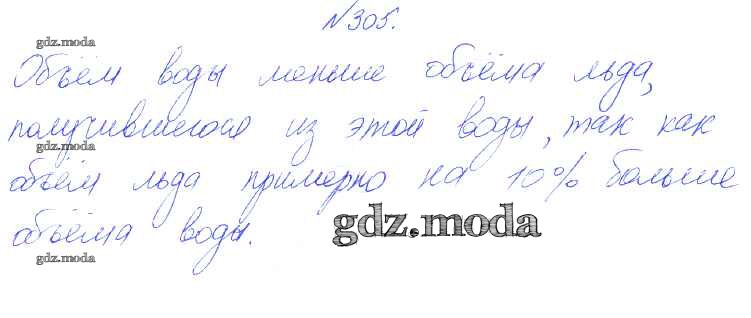 №305.
gdz.moda
Объём воды меньше объёма льда,
получившегося из этой воды, так как
gdz.moda
объём льда примерно на 10% больше
gdz.moda
объёма воды.
gdz.moda